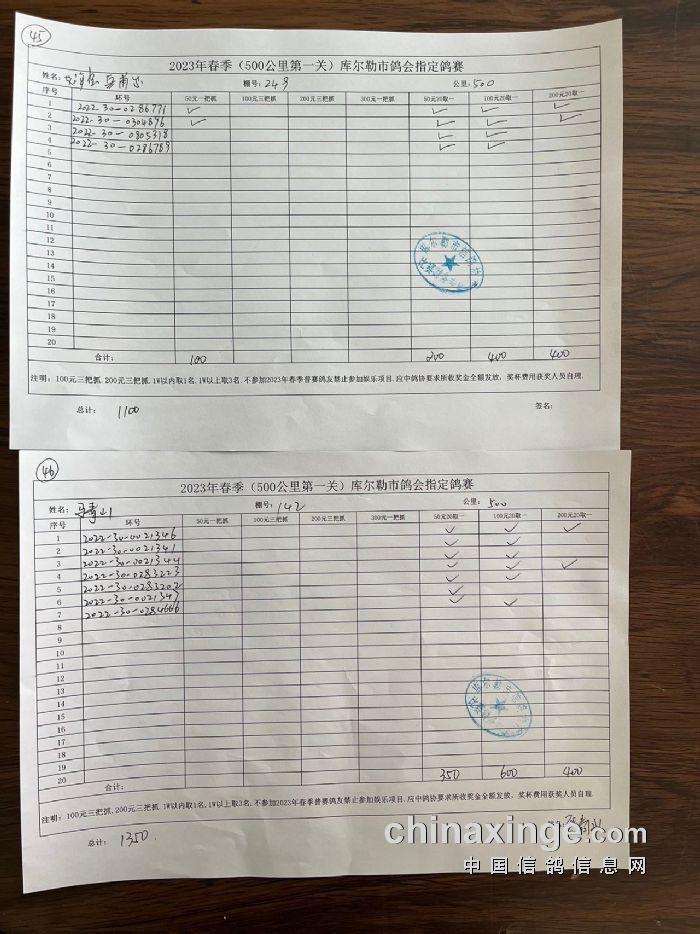 45
2023年春季（500公里第一关）库尔勒市鸽会指定鸽赛
姓名： 棚号：249 公里：500
序号 环号 50元一把抓 100元三把抓 200元三把抓 300元一把抓 50元20取一 100元20取一 200元20取一
1 2022-30-0286771 ✓ ✓ ✓ ✓
2 2022-30-0304896 ✓ ✓ ✓ ✓
3 2022-30-0805318 ✓ ✓
4 2022-30-0286789 ✓ ✓
5
6
7
8
9
10
11
12
13
14
15
16
17
18
19
20
合计： 100 200 400 400
注明：100元三把抓.200元三把抓.1W以内取1名.1W以上取3名.不参加2023年春季普赛鸽友禁止参加娱乐项目.应中鸽协要求所收奖金全额发放，奖杯费用获奖人员自理.
总计： 1100 签名：
46
2023年春季（500公里第一关）库尔勒市鸽会指定鸽赛
姓名：马青山 棚号：142 公里：500
序号 环号 50元一把抓 100元三把抓 200元三把抓 300元一把抓 50元20取一 100元20取一 200元20取一
1 2022-30-0021346 ✓ ✓ ✓
2 2022-30-0021341 ✓ ✓
3 2022-30-0021344 ✓ ✓
4 2022-30-0283223 ✓ ✓ ✓
5 2022-30-0283202 ✓
6 2022-30-002134 ✓ ✓
7 2022-30-0284666
8
9
10
11
12
13
14
15
16
17
18
19
20
合计： 350 600 400
注明：100元三把抓.200元三把抓.1W以内取1名.1W以上取3名.不参加2023年春季普赛鸽友禁止参加娱乐项目.应中鸽协要求所收奖金全额发放，奖杯费用获奖人员自理.
总计： 1350.
chinaxinge.com
中国信鸽信息网